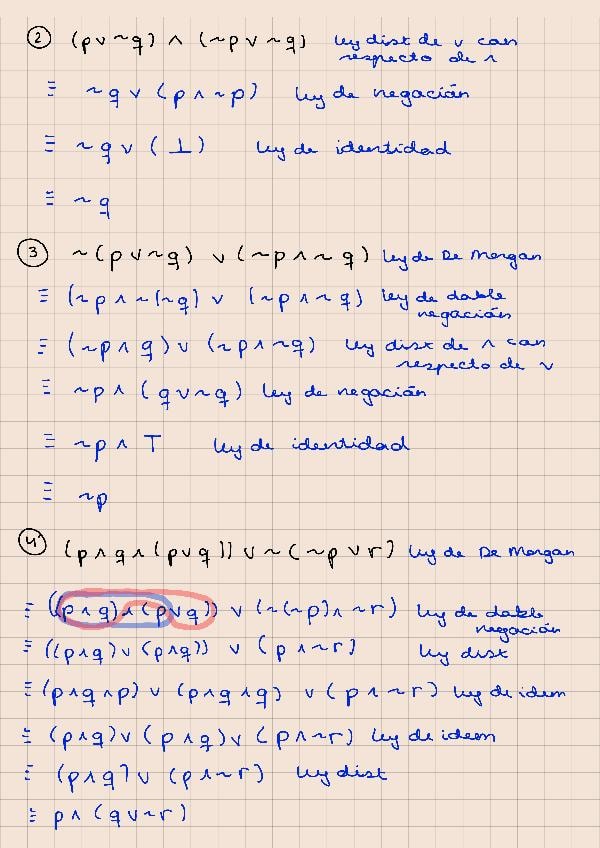 ② (p∨~q) ∧ (~p∨~q) ley dist de ∨ con
respecto de ∧
≡ ~q∨(p∧~p) ley de negación
≡ ~q∨(⊥) ley de identidad
≡ ~q
③ ~(p∨~q) ∨ (~p∧~q) ley de De Morgan
≡ (~p∧~(~q) ∨ (~p∧~q) ley de doble
negación
≡ (~p∧q)∨(~p∧~q) ley dist de ∧ con
respecto de ∨
≡ ~p∧(q∨~q) ley de negación
≡ ~p∧T ley de identidad
≡ ~p
④ (p∧q∧(p∨q)) ∨~(~p∨r) ley de De Morgan
≡ ((p∧q)∧(p∨q)) ∨ (~(~p)∧~r) ley de doble
negación
≡ ((p∧q)∨(p∧q)) ∨ (p∧~r) ley dist
≡ (p∧q∧p)∨(p∧q∧q) ∨(p∧~r) ley de idem
≡ (p∧q)∨(p∧q)∨(p∧~r) ley de idem
≡ (p∧q)∨(p∧~r) ley dist
≡ p∧(q∨~r)